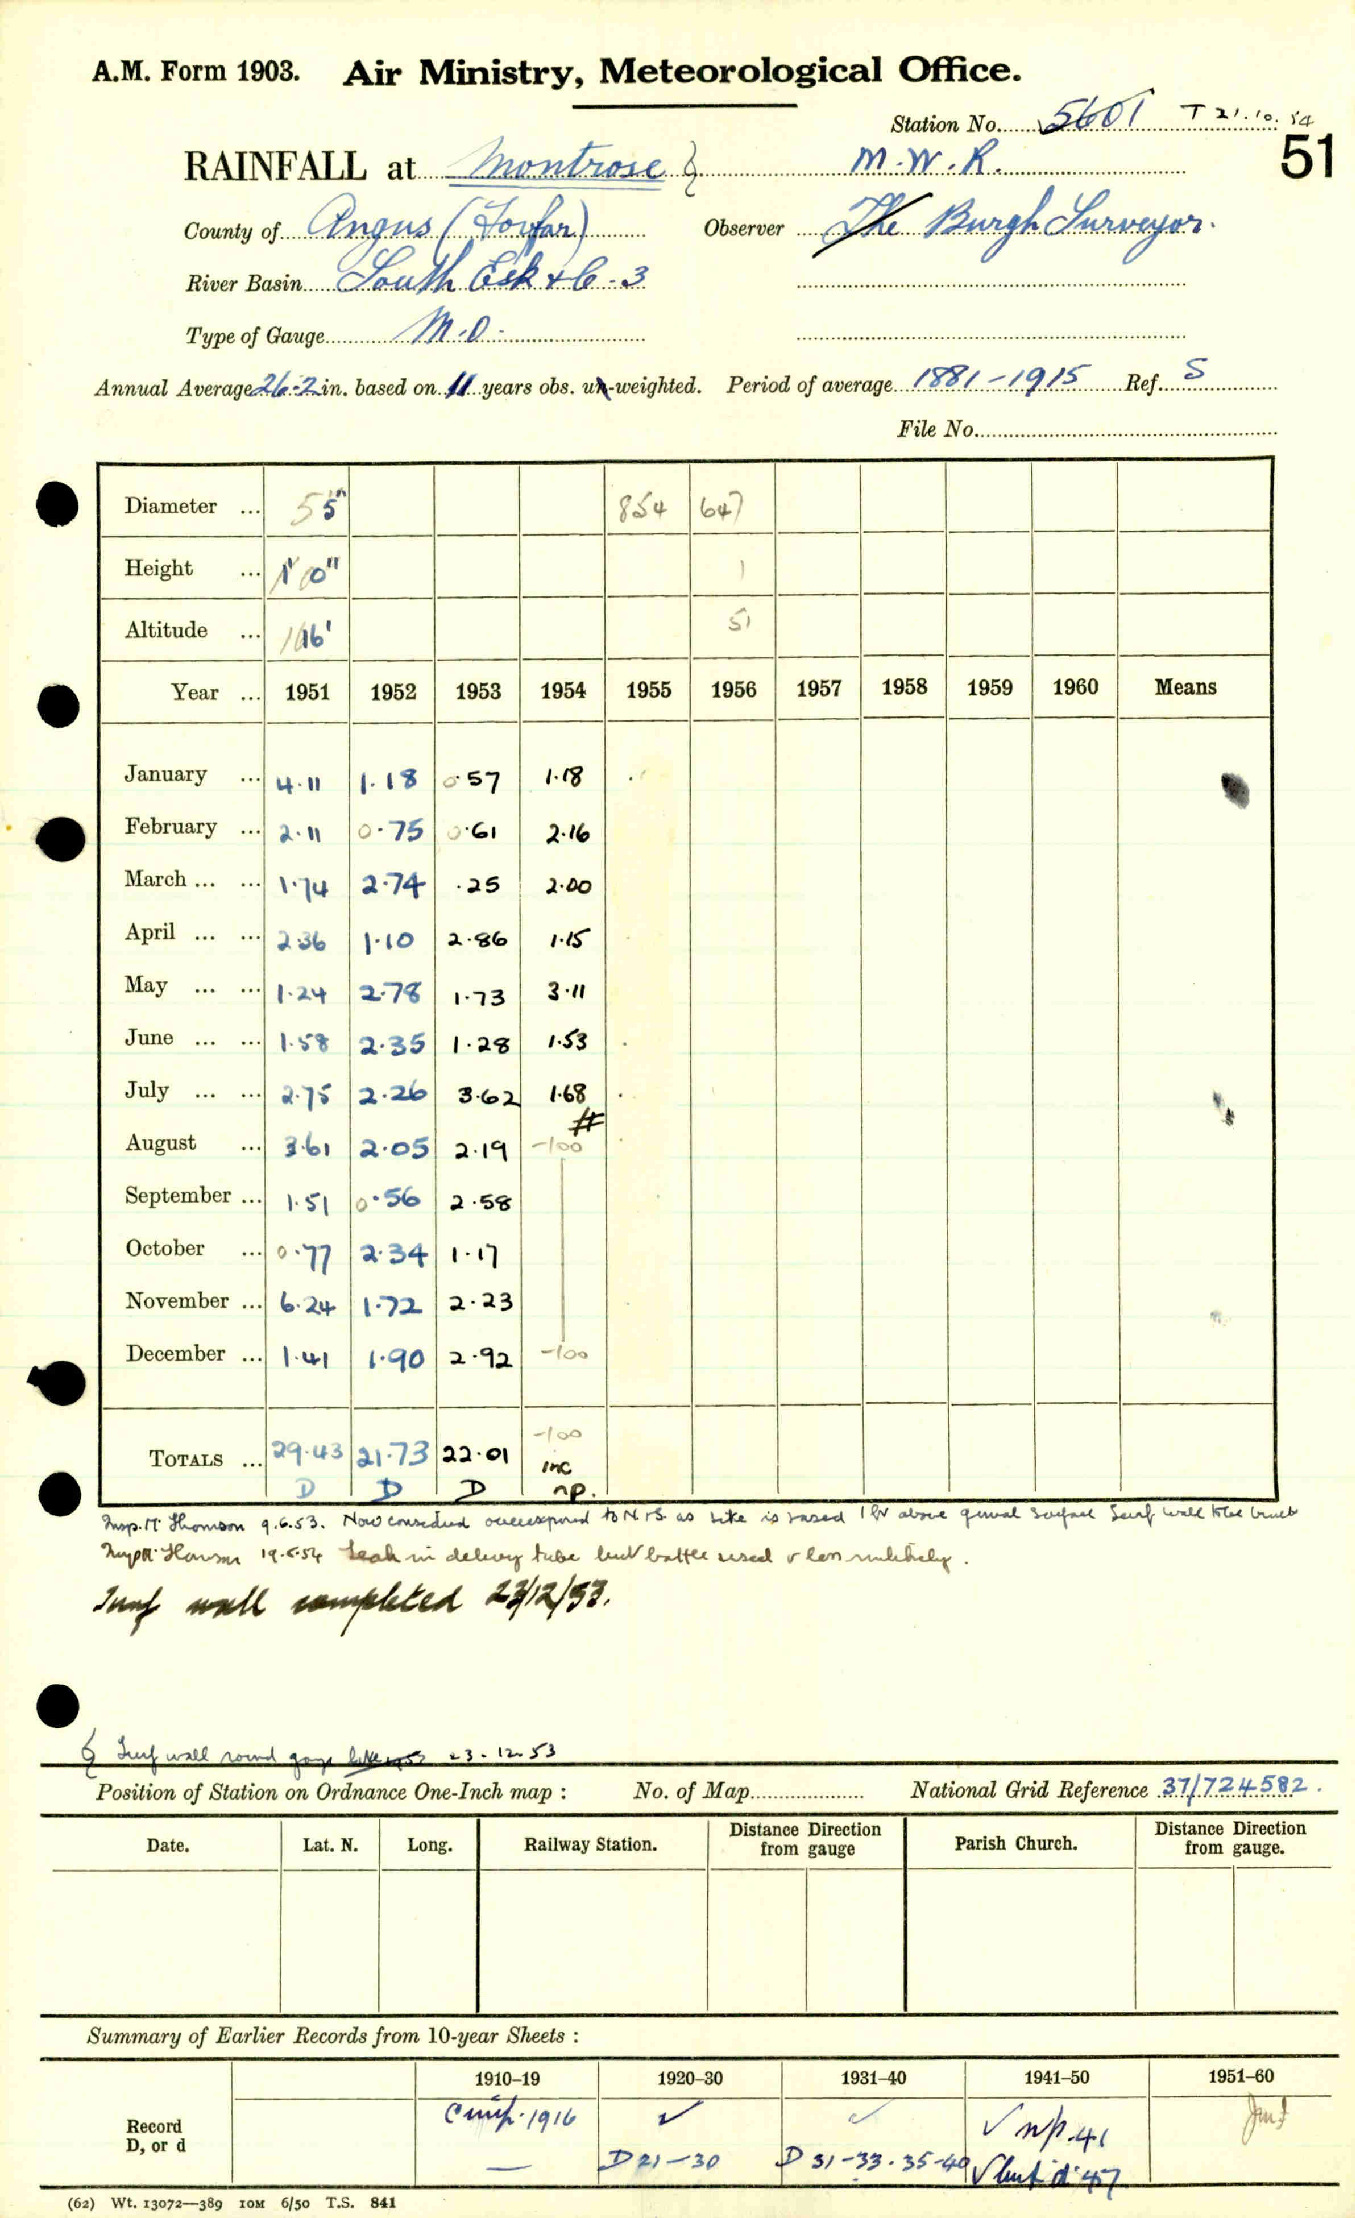 A.M. Form 1903. Air Ministry, Meteorological Office.
Station No. 5601 T 21.10.54
51
RAINFALL at Montrose M.W.R.
County of Angus (Forfar) Observer The Burgh Surveyor.
River Basin South Esk & C - 3
Type of Gauge M.O.
Annual Average 26.2 in. based on 11 years obs. un-weighted. Period of average 1881-1915 Ref. S
File No.
Diameter ... 5" 854 647
Height ... 1' 0" 1
Altitude ... 16' 51
Year ... 1951 1952 1953 1954 1955 1956 1957 1958 1959 1960 Means
January ... 4.11 1.18 0.57 1.18
February ... 2.11 0.75 0.61 2.16
March ... ... 1.74 2.74 .25 2.00
April ... ... 2.36 1.10 2.86 1.15
May ... ... 1.24 2.78 1.73 3.11
June ... ... 1.58 2.35 1.28 1.53
July ... ... 2.75 2.26 3.62 1.68
#
August ... 3.61 2.05 2.19 -100
September ... 1.51 0.56 2.58
October ... 0.77 2.34 1.17
November ... 6.24 1.72 2.23
December ... 1.41 1.90 2.92 -100
-100
TOTALS ... 29.43 21.73 22.01 inc
D D D np.
Insp. Mr Thomson 9.6.53. Now considered overexposed to N & S. as site is raised 1 ft above general surface Turf wall to be built
19.5.54 Leak in delivery tube but bottle used & loss unlikely.
Turf wall completed 23/12/53.
Turf wall round gauge 23-12-53
Position of Station on Ordnance One-Inch map : No. of Map National Grid Reference 37/724582.
Date. Lat. N. Long. Railway Station. Distance from Direction gauge Parish Church. Distance from Direction gauge.
Summary of Earlier Records from 10-year Sheets :
1910–19 1920–30 1931–40 1941–50 1951–60
Record D, or d
1916 ✓ ✓ ✓ np. 41
— D 21-30 D 31-33. 35-40 ✓ but 'd' 47
(62) Wt. 13072—389 10M 6/50 T.S. 841